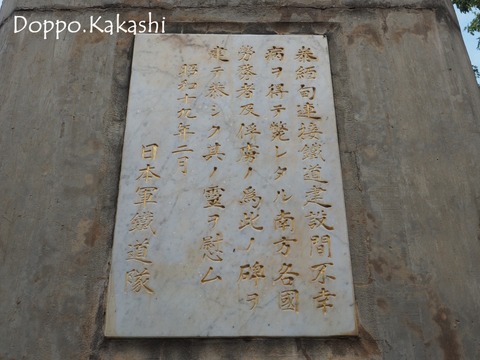 Doppo.Kakashi
泰緬甸連接鐵道建設間不幸
病ヲ得テ斃レタル南方各國
勞務者及俘虜ノ為此ノ碑ヲ
建テ恭シク其ノ靈ヲ慰ム
昭和十九年二月
日本軍鐵道隊